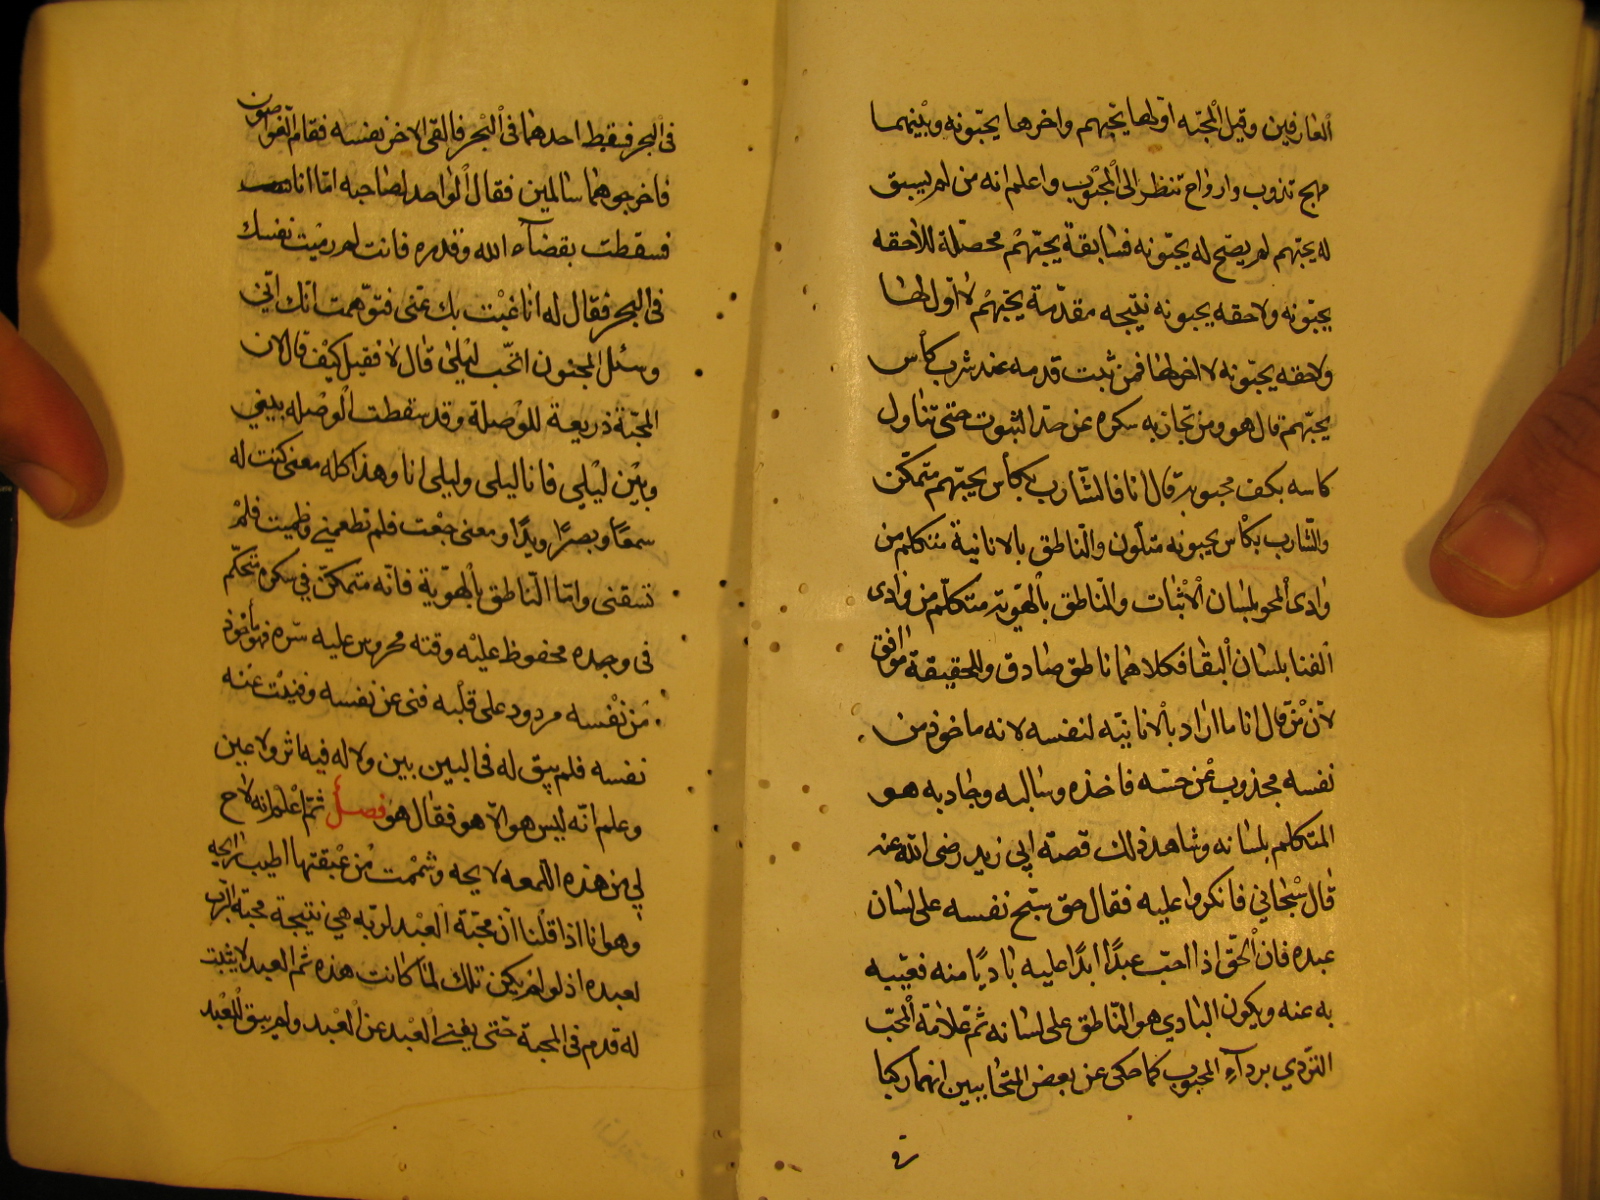 العارفين وقيل المحبّه اولها يحبّهم واخرها يحبّونه وبينهما
مهج تذوب وارواح تنظر الى المحبوب واعلم انه من لم يسبق
له يحبّهم لم يصحّ له يحبّونه فسابقة يحبّهم محصّلة للاحقه
يحبّونه ولاحقه يحبونه نتيجه مقدّمة يحبّهم لا اول لها
ولاحقه يحبّونه لا اخر لها فمن ثبت قدمه عند شرب كأس
يحبّهم قال هو ومن تجاز به سكره عن حدّ الثبوت حتى تناول
كاسه بكف محبوبه قال انا فالشارب بكأس يحبّهم متمكّن
والشارب بكأس يحبونه متلون والناطق بالانانية متكلم من
وادى المحو بلسان الاثبات والناطق بالهويّه متكلّم من وادى
الفنا بلسان البقا فكلاهما ناطق صادق وللحقيقة موافق
لانّ من قال انا ما اراد بالانانيّه لنفسه لانه ماخوذ من
نفسه مجذوب عن حسّه فاخذه وسالبه وجاذبه هو
المتكلم بلسانه وشاهد ذلك قصّة ابي زيد رضى الله عنه
قال سبحاني فانكروا عليه فقال حق سبّح نفسه على لسان
عبده فان الحقّ اذا احبّ عبدًا ابدًا عليه باديًا منه فغيّبه
به عنه ويكون البادي هو النّاطق على لسانه ثم علامة المحبّ
التردّي بردآء المحبوب كما حكى عن بعض المتحابين انهما ركبا
فى البحر فسقط احدهما فى البحر فالقى الاخر نفسه فقام الغواصون
فاخرجوهما سالمين فقال الواحد لصاحبه امّا انا
فسقطت بقضآء الله وقدره فانت لم رميت نفسك
فى البحر فقال له انا غبت بك عنى فتوّهمت انّك انّى
وسئل المجنون اتحبّ ليلى قال لا فقيل كيف قال لان
المحبّة ذريعة للوصلة وقد سقطت الوصله بيني
وبين ليلي فانا ليلى وليلى انا وهذا كله معنى كنت له
سمعًا وبصرًا ويدًا ومعنى جعت فلم تطعمني وظميت فلم
تسقنى وامّا النّاطق بالهويّة فانّه متمكّن في سكره متحكّم
فى وجده محفوظ عليه وقته محروس عليه سرّه فهو مأخوذ
من نفسه مردود على قلبه فنى عن نفسه وفنيت عنه
نفسه فلم يبق له فى البين بين ولا له فيه اثر ولا عين
وعلم انّه ليس هو الّا هو فقال هو فصل ثمّ اعلم انه لاح
لي من هذه اللمعه لايحه وشممت من عبقتها اطيب رايحه
وهو انا اذا قلنا انّ محبّة العبد لربّه هي نتيجة محبّة الرّب
لعبده اذ لو لم يكن تلك لما كانت هذه ثم العبد لا يثبت
له قدم فى المحبة حتى يفني العبد عن العبد ولم يبق للعبد